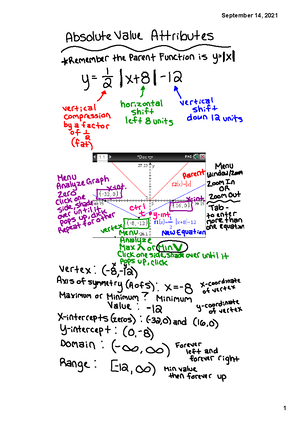 September 14, 2021
Absolute Value Attributes
*Remember the Parent Function is y=|x|
y = 1/2 |x+8| -12
vertical compression by a factor of 1/2 (fat)
horizontal shift left 8 units
vertical shift down 12 units
Menu
Analyze Graph
Zero
Click one
side, shade
over until it
pops up, click
Repeat for other
1.1
*Doc
x-int
(-32,0)
x-int
(16,0)
Parent
ctrl
t
y-int
vertex
New Equation
Menu
window/Zoom
Zoom In
OR
Zoom Out
Tab -
to enter
more than
one equation
Menu
Analyze
Max Λ or Min V
Click one side, shade over until it
Pops up, click
Vertex: (-8,-12)
Axis of symmetry (A of S): x=-8
x-coordinate
of vertex
Maximum or Minimum? Minimum
Value: -12
y-coordinate
of vertex
X-intercepts (zeros): (-32,0) and (16,0)
Y-intercept: (0,-8)
Domain: (-∞, ∞)
Forever
left and
forever right
Range: [-12, ∞)
Min value
then forever up
1